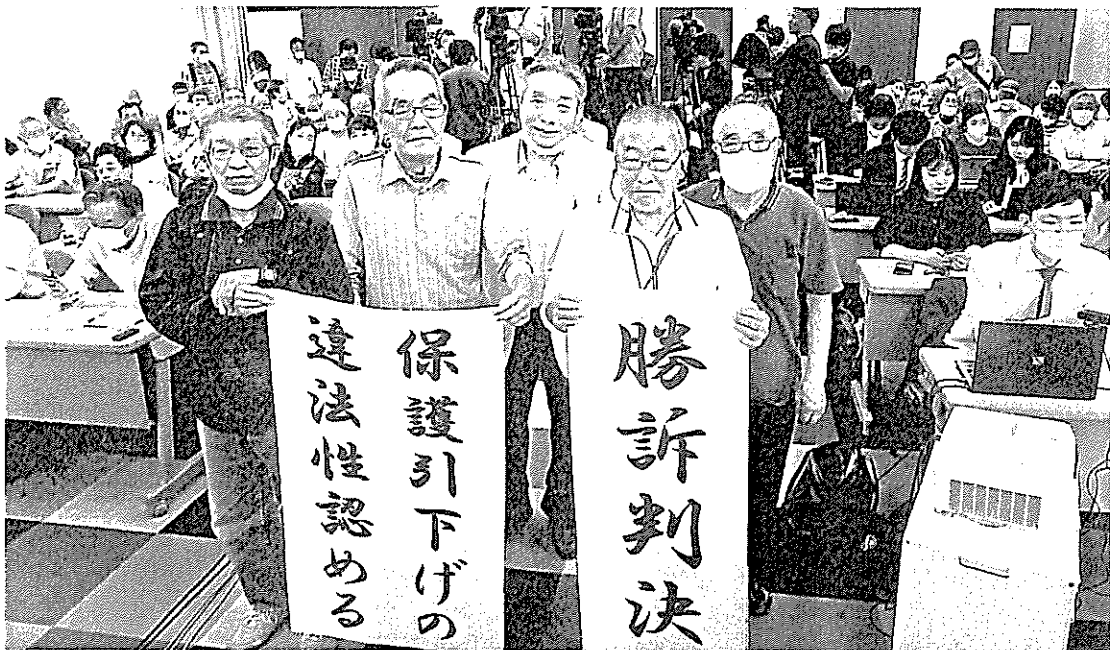 勝訴判決
保護引下げの
違法性認める